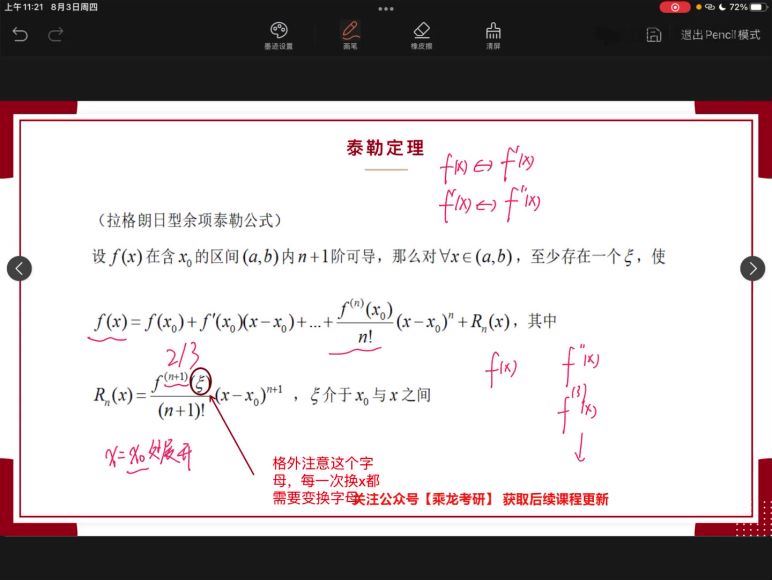 上午11:21 8月3日周四
72%
墨迹设置
画笔
橡皮擦
清屏
退出 Pencil 模式
泰勒定理
f(x) ↔ f'(x)
f'(x) ↔ f''(x)
（拉格朗日型余项泰勒公式）
设 f(x) 在含 x₀ 的区间 (a,b) 内 n+1 阶可导，那么对 ∀x∈(a,b)，至少存在一个 ξ，使
f(x) = f(x₀) + f'(x₀)(x−x₀) + ... + f⁽ⁿ⁾(x₀)/n! (x−x₀)ⁿ + Rₙ(x)，其中
2/3
f(x) f''(x)
Rₙ(x) = f⁽ⁿ⁺¹⁾(ξ)/(n+1)! (x−x₀)ⁿ⁺¹ ，ξ 介于 x₀ 与 x 之间
f⁽³⁾(x)
x=x₀处展开
格外注意这个字
母，每一次换x都
需要变换字母
关注公众号【乘龙考研】 获取后续课程更新